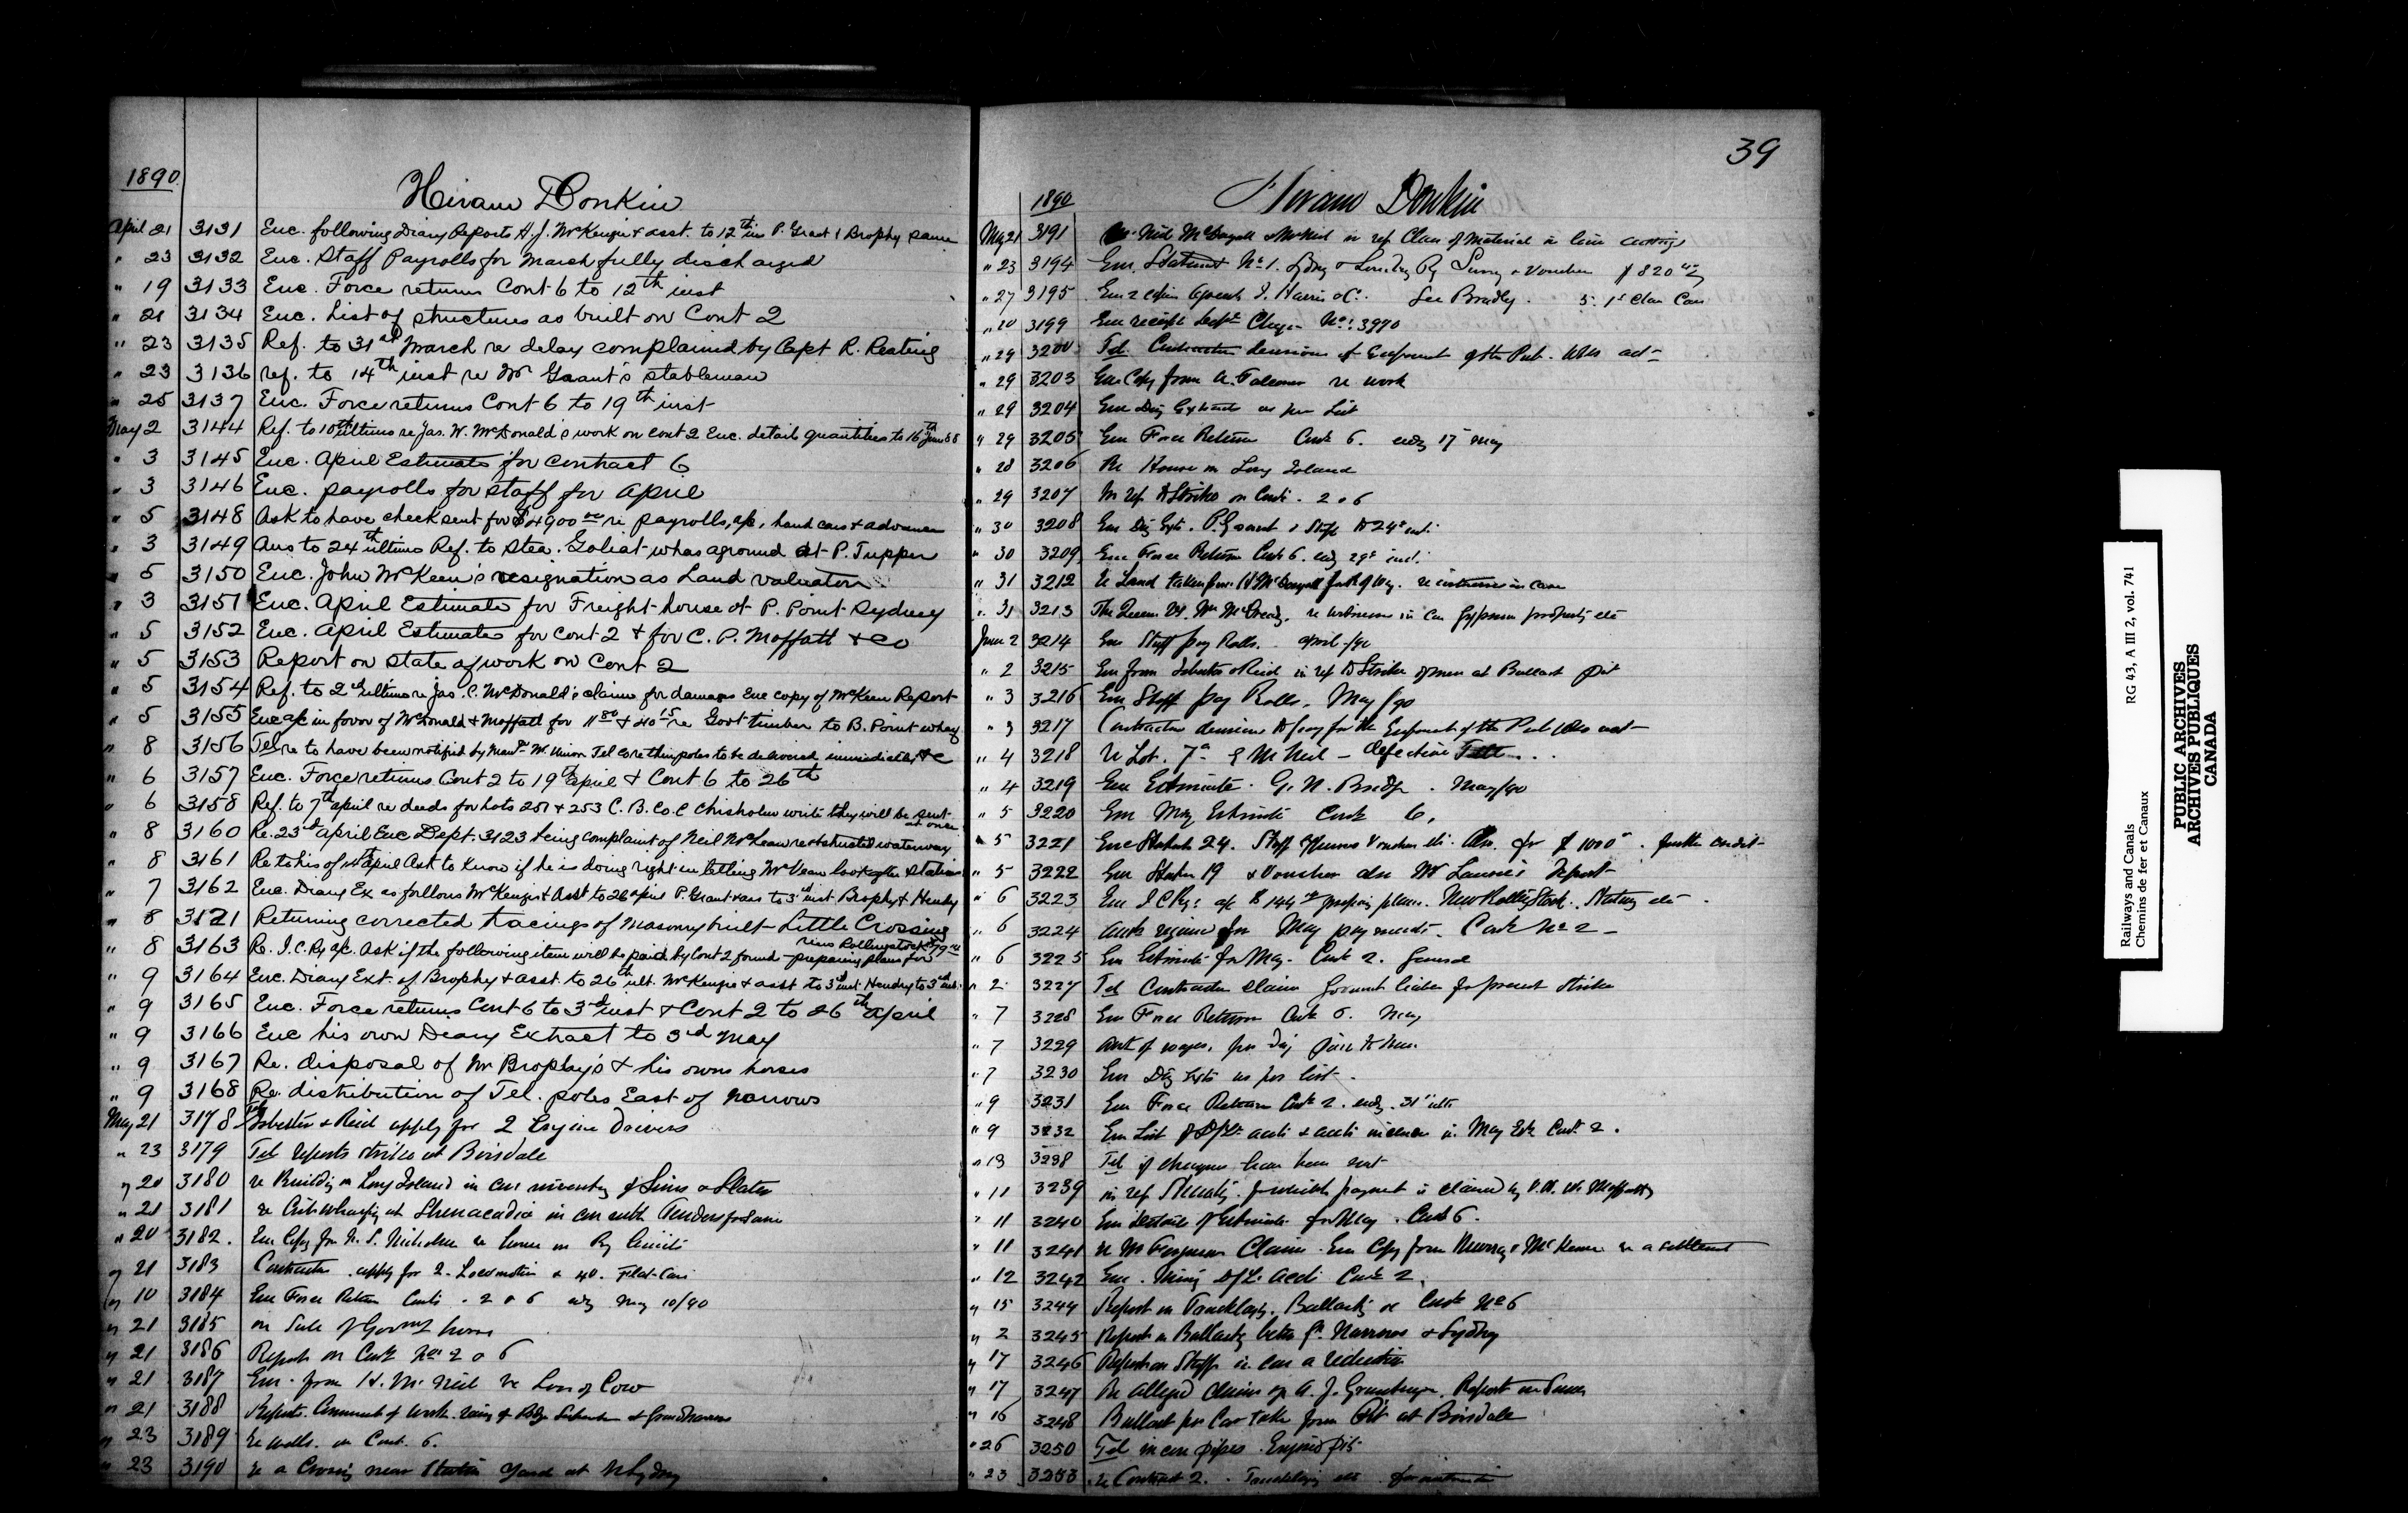 1890
Hiram Donkin
April 21 3131 Enc. following Diary Reports H. J. McKenzie & asst. to 12th ins P. Grant & Brophy same
" 23 3132 Enc. Staff Payrolls for March fully discharged
" 19 3133 Enc. Force returns Cont 6 to 12th inst
" 21 3134 Enc. List of structures as built on Cont 2
" 23 3135 Ref. to 31st March re delay complained by Capt R. Keating
" 23 3136 ref. to 14th inst re Mr Grant's stableman
" 25 3137 Enc. Force returns Cont 6 to 19th inst
May 2 3144 Ref. to 10th ultimo re Jas. W. McDonald's work on cont 2 Enc. detail quantities to 16th June 88
" 3 3145 Enc. April Estimate for contract 6
" 3 3146 Enc. payrolls for staff for April
" 5 3148 Ask to have check sent for $4900 00 re payrolls, a/c, hand cars & advances
" 3 3149 Ans to 24th ultimo Ref. to Stea. Goliat whas aground at P. Tupper
" 5 3150 Enc. John McKeen's resignation as Land valuator
" 3 3151 Enc. April Estimate for Freight house at P. Point Sydney
" 5 3152 Enc. April Estimates for Cont 2 & for C. P. Moffatt & Co
" 5 3153 Report on state of work on Cont 2
" 5 3154 Ref. to 2nd ultimo re Jas. C. McDonald's claim for damages Enc copy of McKeen Report
" 5 3155 Enc a/c in favor of McDonald & Moffatt for 11 80 & 40 15 re Govt timber to B. Point wharf
" 8 3156 Tel re to have been notified by W. Union Tel Co re poles to be delivered immediately &c
" 6 3157 Enc. Force returns Cont 2 to 19th April & Cont 6 to 26th
" 6 3158 Ref. to 7th April re deeds for lots 251 & 253 C. B. Co. C Chisholm write they will be sent at once
" 8 3160 Re. 23rd April Enc Dept. 3123 being complaint of Neil McLean re obstructed waterway
" 8 3161 Re to his of 14th April Ask to know if he is doing right in letting McVean look after stations
" 7 3162 Enc. Diary Ex as follows McKenzie & Asst to 26 April P. Grant & ass to 3rd inst Brophy & Hendry
" 8 3121 Returning corrected tracings of Masonry built Little Crossing
" 8 3163 Re. I. C. Ry a/c. Ask if the following item will be paid by Cont 2 found - preparing plans for Rollingstock
" 9 3164 Enc. Diary Ext. of Brophy & asst. to 26th ult. McKenzie & asst to 3rd inst. Hendry to 3rd inst.
" 9 3165 Enc. Force returns Cont 6 to 3rd inst & Cont 2 to 26th April
" 9 3166 Enc his own Deary Extract to 3rd May
" 9 3167 Re. disposal of Mr Brophy's & his owns horses
" 9 3168 Re. distribution of Tel. poles East of Narrows
May 21 3178 Tel Isbester & Reid apply for 2 Engine Drivers
" 23 3179 Tel reports strikes at Boisdale
" 20 3180 re Building on Long Island in con
" 21 3181 re Cribwharfing at Shenacadie in con with Tenders for same
" 20 3182. Enc Copy for N. S. Nicholson re house on Ry limits
" 21 3183 Contractors apply for 2 Locomotives & 40. Flat-Cars
" 10 3184 Enc Force Return Conts. 2 & 6 endg May 10/90
" 21 3185 on Sale of Govmt horses
" 21 3186 Reports on Cont Nos 2 & 6
" 21 3187 Enc. from H. McNeil re Loss of Cow
" 21 3188 Reports
" 23 3189 re walls. on Cont. 6.
" 23 3190 re a Crossing near Station yard at N Sydney
39
1890
Hiram Donkin
May 21 3191 Neil McDougall & McNeil in ref Class of Material in line cuttings
" 23 3194 Enc. Statement No 1. Sydney & Louisbg Ry Survey & Voucher $820
" 27 3195 Enc 2 copies Agreemt J. Harris & Co. See Bradley. 5. 1st Class Cars
" 20 3199 Enc receipt Dept Cheque No: 3970
" 29 3200 Tel. Contractors
" 29 3203 Enc Copy from A. Falconer re work
" 29 3204 Enc Diy Extracts as per List
" 29 3205 Enc Force Return Cont 6. endg 17 May
" 28 3206 Re House on Long Island
" 29 3207 In ref to Strike on Conts. 2 & 6
" 30 3208 Enc Diy Exts. P. Grant & Staff to 24th inst.
" 30 3209 Enc Force Return Cont 6. endg
" 31 3212 re Land taken from H McDougall for R of Way.
" 31 3213 The Queen vs. Wm McCready. re witnesses in Gypsum property etc
June 2 3214 Enc Staff pay Rolls. April /90
" 2 3215 Enc from Isbester & Reid in ref to Strike of men at Ballast Pit
" 3 3216 Enc Staff Pay Rolls. May /90
" 3 3217 Contractors
" 4 3218 re Lot. 7a McNeil - defective Title
" 4 3219 Enc Estimate. G. N. Bridge. May/90
" 5 3220 Enc May Estimate Cont 6.
" 5 3221 Enc Statemt 24. Staff Expenses Voucher etc. for $1000 further credit
" 5 3222 Enc Statem 19 & Voucher also Mr Laurie's Report
" 6 3223 Enc I C Ry: a/c $144 preparing plans. New Rolling Stock. Stations etc
" 6 3224 Amts required for May payments. Cont No 2
" 6 3225 Enc Estimate for May. Cont 2. General
" 2 3227 Tel Contractors claim Govment liable for present strike
" 7 3228 Enc Force Return Cont 6. May
" 7 3229 Amt of wages. per day
" 7 3230 Enc Diy Exts as per list
" 9 3231 Enc Force Return Cont 2. endg. 31st ulto
" 9 3232 Enc List of
" 13 3238 Tel if cheques have been sent
" 11 3239 in ref for which payment is claimed by
" 11 3240 Enc details of Estimate for May. Cont 6.
" 11 3241 re Mr Ferguson Claim. Enc Copy from Murray & McKenzie re a settlement
" 12 3242 Enc. Cont 2.
" 15 3244 Report on Tracklayg. Ballastg on Cont No 6
" 2 3245 Report on Ballastg betn Gd Narrows & Sydney
" 17 3246 Report on Staff in con a reduction
" 17 3247 Re alleged claim of A. J. Report
" 16 3248 Ballast per Car taken from Pit at Boisdale
" 26 3250 Tel in con pipes Engine pit
" 23 3253 re Contract 2. Tracklaying etc
Railways and Canals
Chemins de fer et Canaux
RG 43, A III 2, vol. 741
PUBLIC ARCHIVES
ARCHIVES PUBLIQUES
CANADA